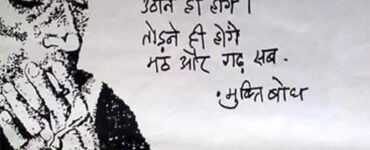 उठाने ही होंगे।
तोड़ने ही होंगे
मठ और गढ़ सब.
. मुक्तिबोध